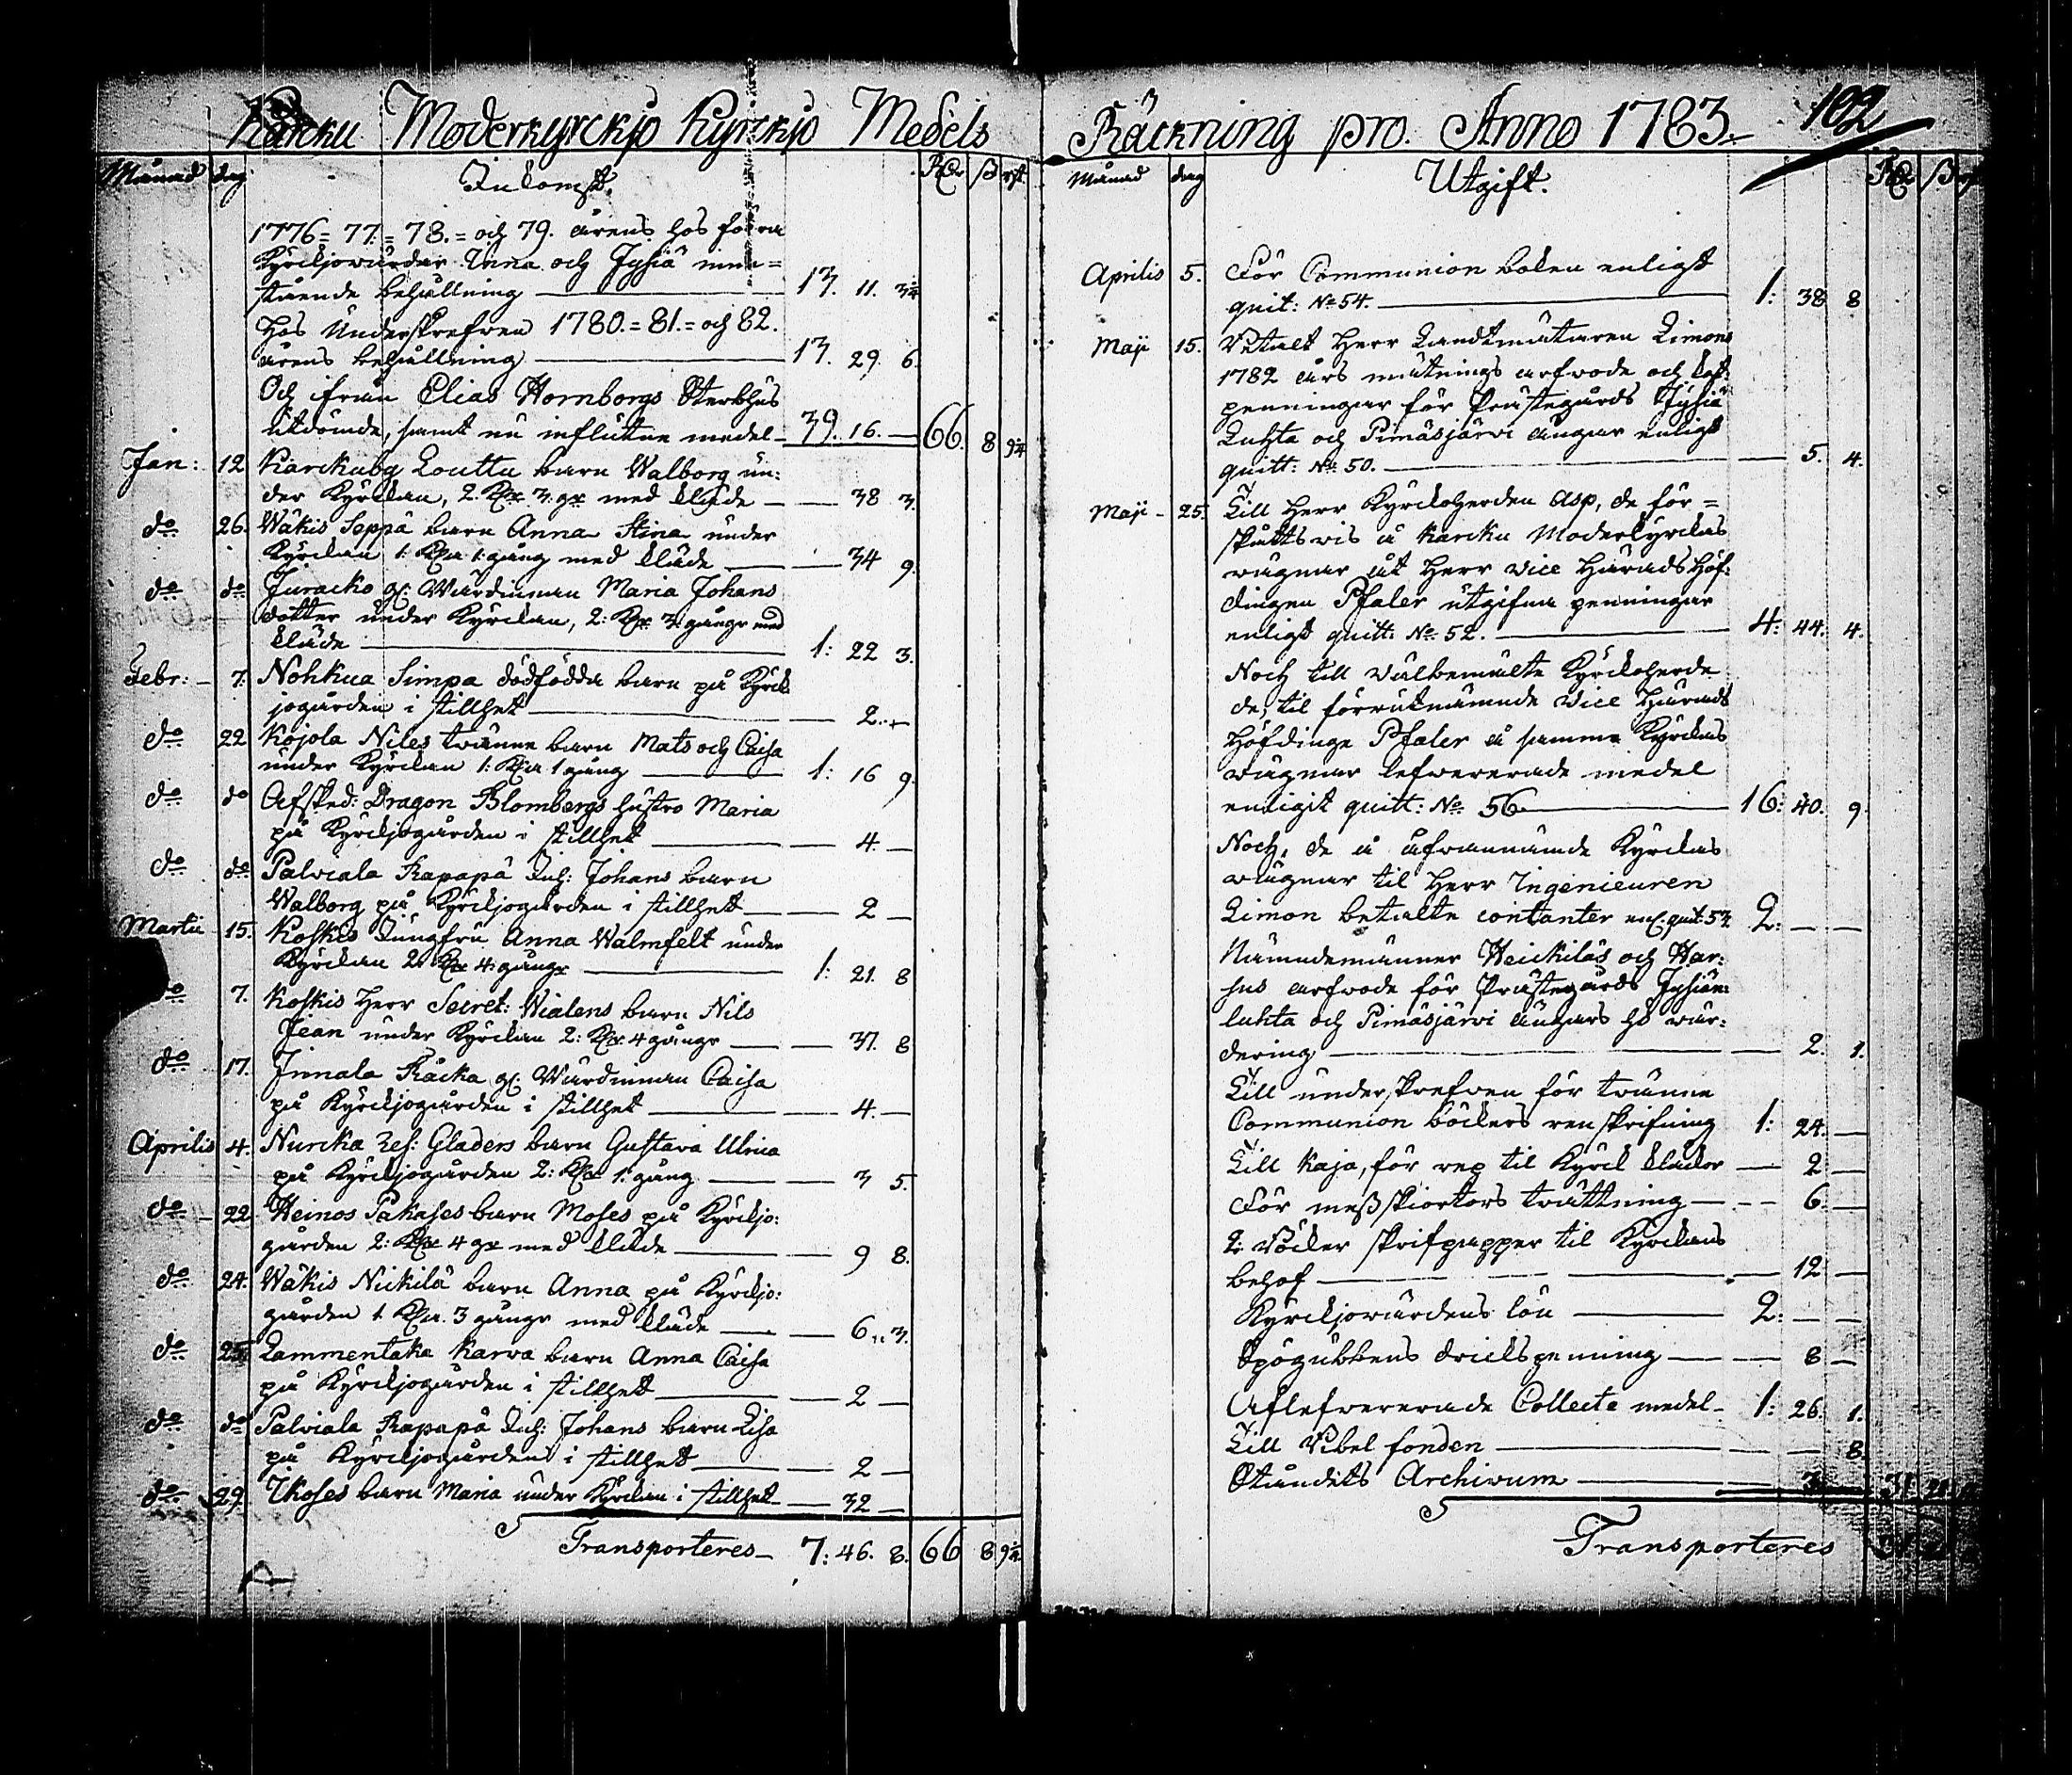 Karcku Moderkyrckjo Kyrckjo Medels
Månad dag Inkomst. Rdr ß rst.
1776 = 77. = 78. = och 79. årens hos förra
Kyrckjowärdar Inna och Jysiä inne=
stående behållning — 13. 11. 3¼
Hos Underskrefven 1780. = 81. = och 82.
årens behållning — 13. 29. 6.
Och ifrån Elias Hornborgs Sterbhus
utdömde, samt nu influtne medel — 39. 16. — 66. 8 9¼
Jan: 12 Karckuby Louttu barn Walborg un:
der Kyrckan, 2. Kl:r 3. gr med kläde — 38 3.
do 26. Wäkis Seppä barn Anna Stina under
Kyrckan 1. Kl:a 1: gång med kläde — 34 9.
do do Juracko gl: Wärdinnan Maria Johans
dotter under Kyrckan, 2: Kl:r 3: gångr med
kläde — 1: 22 3.
Febr: 7. Nohkua Simpa dödfödda barn på Kyrck
jogården i stillhet — 2. —
do 22 Kojola Niles tvänne barn Mats och Caisa
under Kyrckan 1: Kl:a 1 gång — 1: 16 9.
do do Afsked: Dragon Blombergs hustro Maria
på Kyrckjogården i stillhet — 4. —
do do Palviala Rapapä Inh: Johans barn
Walborg på Kyrckjogården i stillhet — 2 —
Martii 15. Koskis Jungfru Anna Walmfelt under
Kyrckan 2: Kl:r 4: gångr — 1: 21. 8
do 7. Koskis Herr Secret: Wialens barn Nils
Jean under Kyrckan 2: Kl:r 4 gångr — 37. 8
do 17. Innala Räcka gl: Wärdinnan Caisa
på Kyrckjogården i stillhet — 4. —
Aprilis 4. Nurcka Ref: Gladers barn Gustava Ulrica
på Kyrckjogården 2: Kl:ar 1: gång — 3 5.
do 22 Heinos Pakases barn Moses på Kyrckjo:
gården 2: Kl:r 4 gr med kläde — 9 8.
do 24. Wäkis Nickilä barn Anna på Kyrckjo:
gården 1. Kl:a. 3 gångr med kläde — 6. 3.
do 25. Lammentaka Karva barn Anna Caisa
på Kyrckjogården i stillhet — 2 —
do do Palviala Rapapä Inh: Johans barn Lisa
på Kyrckjogården i stillhet — 2 —
do 29. Ikoses barn Maria under Kyrckan i stillhet — 32 —
Transporteres — 7: 46. 8. 66 8 9¼
Räckning pro. Anno 1783. 102
Månad dag Utgift. Rdr ß
Aprilis 5. För Communion boken enligt
quit: No 54. — 1: 38 8
Maji 15. Betalt Herr Landtmätaren Limons
1782 års mätnings arfvode och kost
penningar för Prästegårds Jysiä
Luhta och Pimäsjärvi ängar enligt
quitt: No 50. — 5. 4.
Maji — 25. Till Herr Kyrckoherden Asp, de för=
skåttsvis å Karcku Moderkyrckas
vägnar åt Herr Vice Häradshöf:
dingen Pfaler utgifna penningar
enligt quitt: No 52. — 4: 44. 4.
Noch till Välbemälte Kyrckoherde
de, til förrutnämnde Vice Härads
höfdinge Pfaler å samma Kyrckas
vägnar lefvererade medel
enligit quitt: No 56 — 16: 40. 9.
Noch, de å åfvannämde Kyrckas
vägnar til Herr Ingenieuren
Limon betalte contanter enl. quit: 57. 2: — —
Nämndemänner Heickiläs och Har:
jus arfvode för Prästegårds Jysiän:
luhta och Pimäsjärvi ängars hö wär:
dering — 2. 1.
Till underskrefven för tvänne
Communion böckers renskrifning 1: 24. —
Till Kaja, för rep til Kyrck klackor — 2 —
För mesßskiortors tvättning — 6. —
2: böcker skrifpapper til Kyrckans
behof — 12 —
Kyrckjowärdens lön — 2: — —
Spögubbens drickspenning — 8 —
Aflefvererade Collecte medel — 1: 26. 1.
Till Bibel fonden — 8.
Ständets Archivum — 3
Transporteres